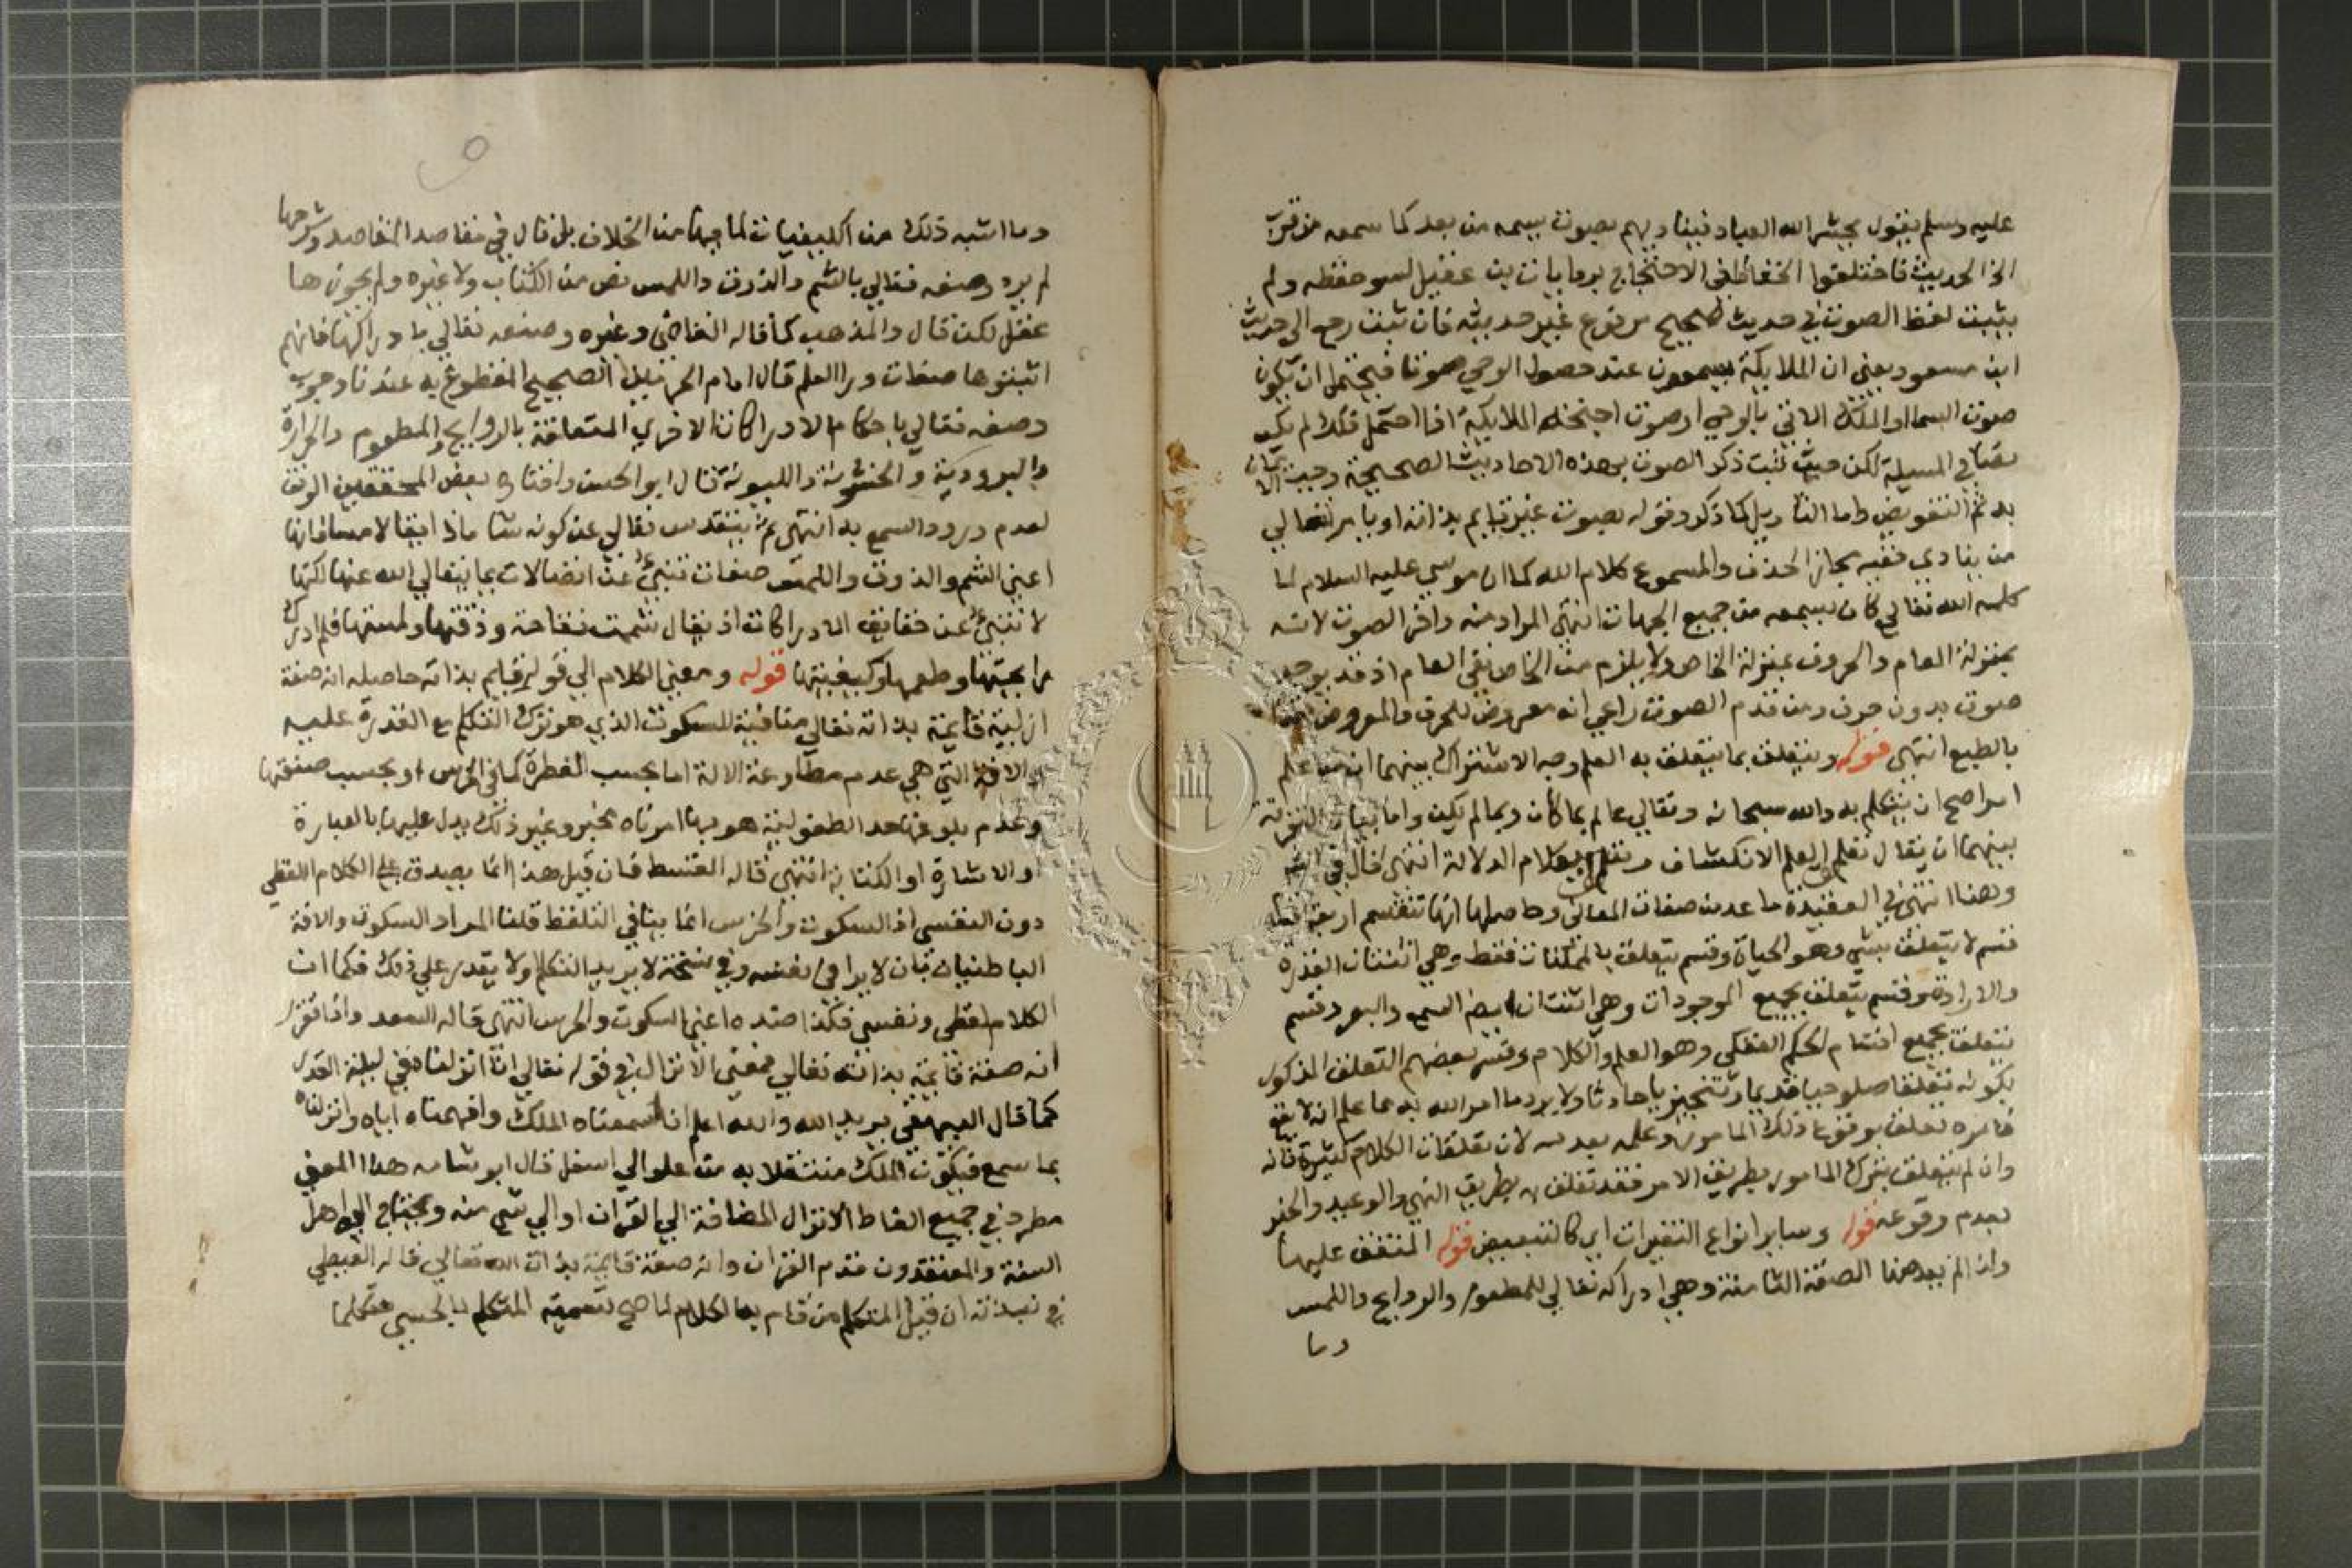 عليه وسلم يقول يحشر الله العباد فيناديهم بصوت يسمعه من بعد كما سمعه من قرب
الخ الحديث فاختلفوا الحفاظ في الاحتجاج بروايات بن عقيل لسو حفظه ولم
يثبت لفظ الصوت في حديث صحيح مرفوع غير حديثه فان ثبت رجع الى حديث
ابن مسعود يعني ان الملايكة يسمعون عند حصول الوحي صوتا فيحتمل ان يكون
صوت السما او الملك الاتي بالوحي او صوت اجنحة الملايكة اذا احتمل ذلك لم يكن
نصا في المسيلة لكن حيث ثبت ذكر الصوت بهذه الاحاديث الصحيحة وجب الايمان
به ثم التفويض واما التاويل كما ذكر وقوله بصوت غير قايم بذاته او يامر تعالى
من ينادي ففيه مجاز الحذف والمسموع كلام الله كما ان موسي عليه السلام لما
كلمه الله تعالى كان يسمعه من جميع الجهات انتهى المراد منه واخر الصوت لانه
بمنزلة العام والحروف بمنزلة الخاص ولا يلزم من الخاص نفى العام اذ قد يوجد
صوت بدون حرف ومن قدم الصوت راعي انه معروض للحرف والمعروض
بالطبع انتهى قوله ويتعلق بما يتعلق به العلم وجه الاشتراك بينهما ان من علم
امرا صح ان يتكلم به والله سبحانه وتعالي عالم بما كان وبما لم يكن واما بيان التفرقة
بينهما ان يقال تعلق العلم الانكشاف وتعلق الكلام الدلالة انتهى قال في
وهنا انتهى في العقيدة ما عد من صفات المعاني وحاصلها انها تنقسم اربعة اقسام
قسم لا يتعلق بشي وهو الحياة وقسم يتعلق بالممكنات فقط وهي اثنتان القدرة
والارادة وقسم يتعلق بجميع الموجودات وهي اثنتان ايضا السمع والبصر وقسم
يتعلق بجميع اقسام الحكم العقلي وهو العلم والكلام وفسر بعضهم التعلق المذكور
بكونه تعلقا صلوحيا قديما وتنجيزيا حادثا ولا يرد ما امر الله به مما علم انه لا يقع
فامره تعلق بوقوع ذلك المامور وعلمه بعدمه لان تعلقات الكلام كثيرة فانه
وان لم يتعلق بترك المامور بطريق الامر فقد تعلق به بطريق النهي والوعيد والخبر
بعدم وقوعه قوله وساير انواع التغيرات اي كالتبعيض قوله المتفق عليها
وانما لم يعد هنا الصفة الثامنة وهي ادراكه تعالى للمطعوم والروايح واللمس
وما
وما اشبه ذلك من الكيفيات لما فيها من الخلاف بل قال في مقاصد المقاصد وشرحها
لم يرد وصفه تعالي بالشم والذوق واللمس نص من الكتاب ولا غيره ولم يجوزها
عقل لكن قال والمذهب كما قاله القاضي وغيره وصفه تعالي بادراكها فانهم
اثبتوها صفات ورا العلم قال امام الحرمين الصحيح المقطوع به عندنا وجوب
وصفه تعالي باحكام الادراكات الاخري المتعلقة بالروايح والمطعوم والحرارة
والبرودية والخشونة والليونة قال ابو الحسن واختار بعض المحققين الوقف
لعدم ورود السمع به انتهى ثم يتقدس تعالى عن كونه شاما ذايقا لامسا فانها
اعني الشم والذوق واللمس صفات تنبئ عن اتصالات يتعالى الله عنها لكنها
لا تنبئ عن حقايق الادراكات اذ يقال شممت تفاحة وذقتها ولمستها فلم ادرك
رايحتها وطعمها وكيفيتها قوله ومعنى الكلام الي قوله قايم بذاته حاصله انه صفة
ازلية قايمة بذاته تعالي منافية للسكوت الذي هو ترك التكلم مع القدرة عليه
والافة التي هي عدم مطاوعة الالة اما بحسب الفطرة كما في الخرس او بحسب ضعفها
وعدم بلوغها حد الطفولية هو بها امر ناه مخبر وغير ذلك يدل عليها بالعبارة
او الاشارة او الكتابة انتهى قاله القسط فان قيل هذا انما يصدق على الكلام اللفظي
دون النفسي اذ السكوت والخرس انما ينافي التلفظ قلنا المراد السكوت والافة
الباطنيان بان لا يدبر في نفسه وفي نسخة لا يريد التكلم اولا يقدر علي ذلك فكما ان
الكلام لفظى ونفسي فكذا ضده اعني السكوت والخرس انتهى قاله السعد واذا تقرر
انه صفة قايمة بذاته تعالي فمعنى الانزال في قوله تعالي انا انزلناه في ليلة القدر
كما قال البيهقي يريد الله والله اعلم انا اسمعناه الملك وافهمناه اياه وانزلناه
بما سمع فيكون الملك منتقلا به من علو الي اسفل قال ابو شامه هذا المعني
مطرد في جميع الفاظ الانزال المضافة الي القران او الي شي منه ويحتاج اليه اهل
السنة والمعتقدون قدم القران وانه صفة قايمة بذات الله تعالي قاله الغيطي
فان قيل المتكلم من قام به الكلام لما صح تسمية المتكلم بالحسي متكلما